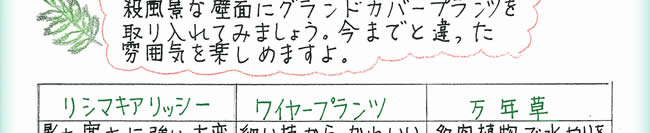 殺風景な壁面にグランドカバープランツを
取り入れてみましょう。今までと違った
雰囲気を楽しめますよ。
リシマキアリッシー ワイヤープランツ 万年草